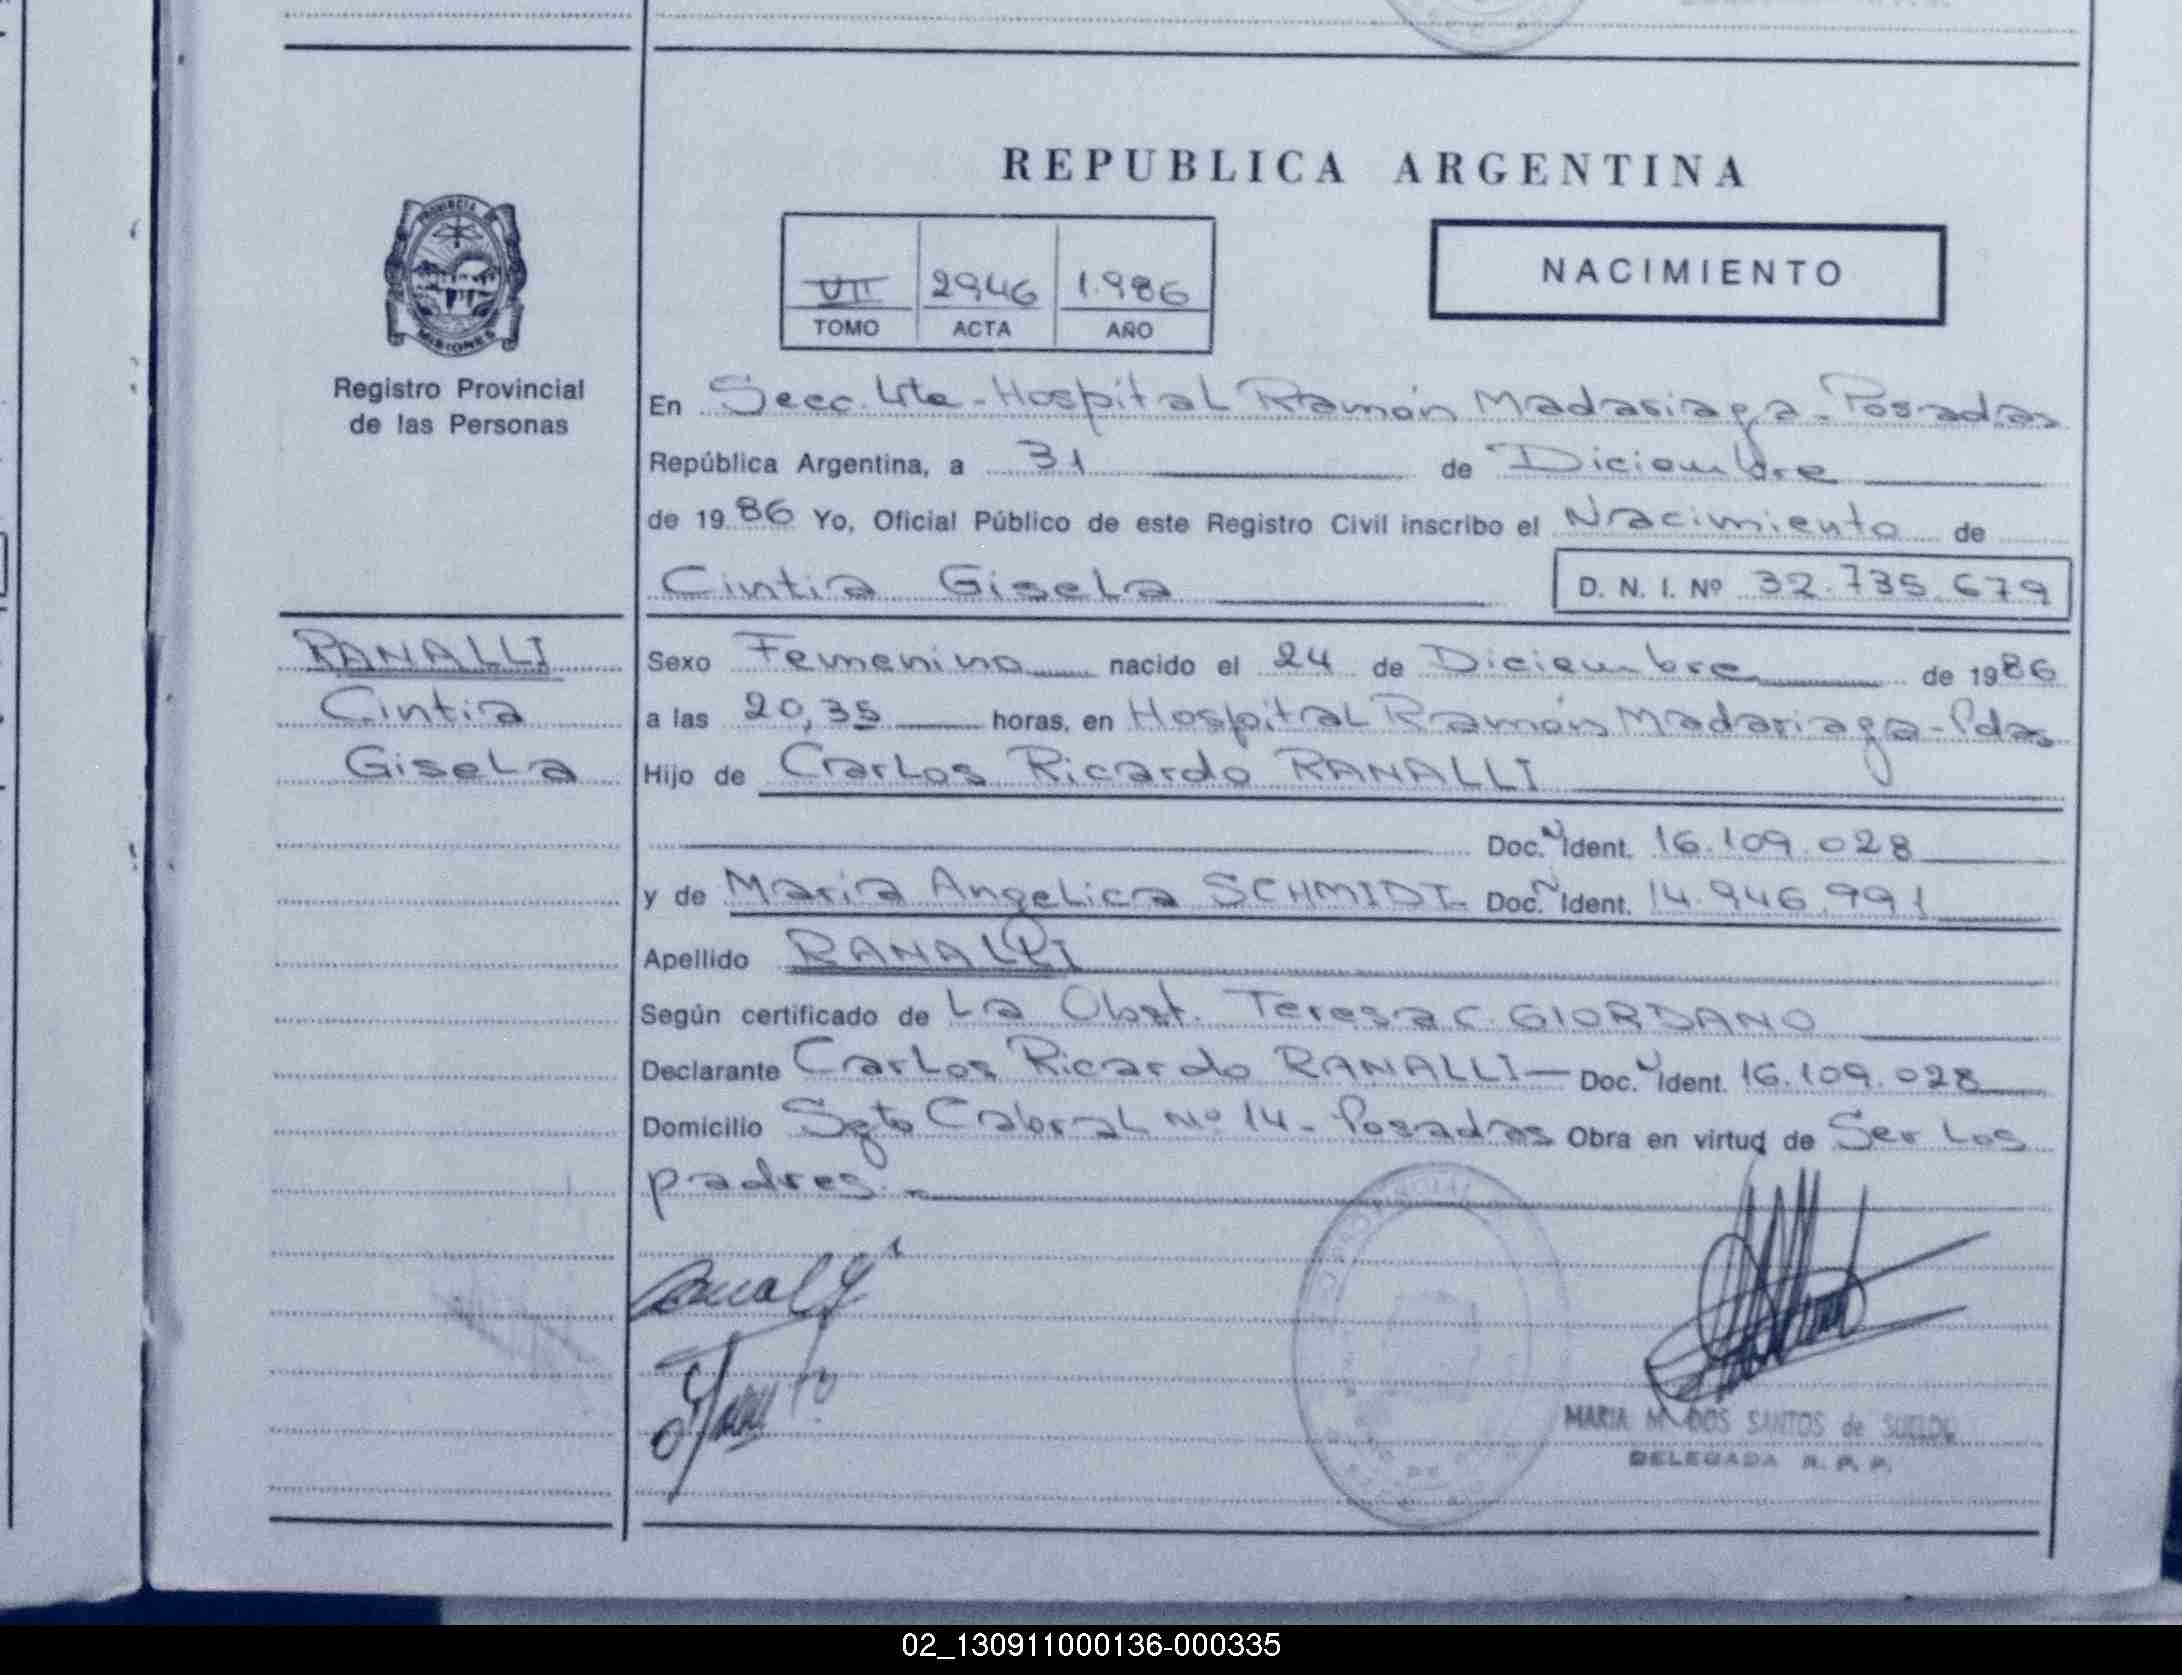 REPUBLICA ARGENTINA
PROVINCIA DE
MISIONES
Registro Provincial
de las Personas
VII 2946 1.986
TOMO ACTA AÑO
NACIMIENTO
En Secc. 4ta - Hospital Ramón Madariaga - Posadas
República Argentina, a 31 de Diciembre
de 1986 Yo, Oficial Público de este Registro Civil inscribo el Nacimiento de
Cintia Gisela D. N. I. Nº 32.735.679
RANALLI
Cintia
Gisela
Sexo Femenino nacido el 24 de Diciembre de 1986
a las 20,35 horas, en Hospital Ramón Madariaga - Pdas
Hijo de Carlos Ricardo RANALLI
Doc. N Ident. 16.109.028
y de Maria Angelica SCHMIDT - Doc. N Ident. 14.946.991
Apellido RANALLI
Según certificado de La Obst. Teresa C. GIORDANO
Declarante Carlos Ricardo RANALLI - Doc. N Ident. 16.109.028
Domicilio Sgto Cabral Nº 14 - Posadas Obra en virtud de Ser Los
padres. -
MARIA M. DOS SANTOS de
DELEGADA R. P. P.
02_130911000136-000335